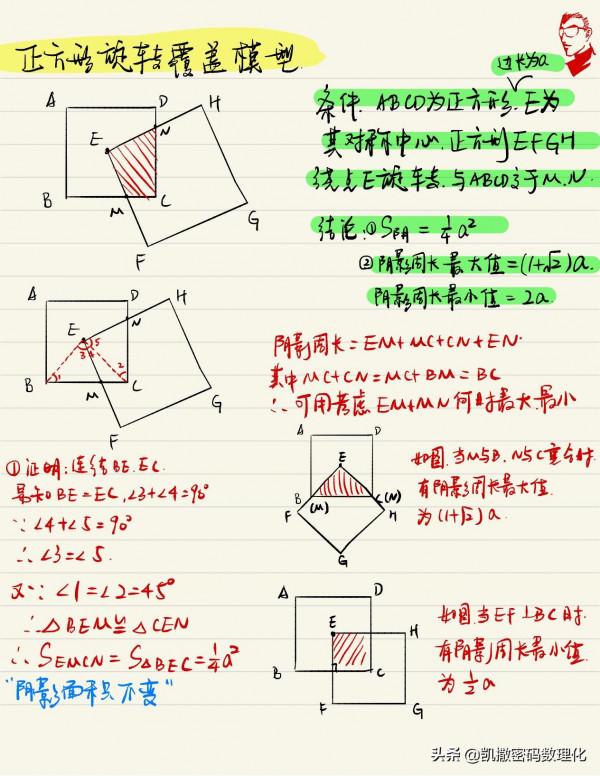 正方形旋转覆盖模型
边长为a
条件:ABCD为正方形.E为
其对称中心.正方形EFGH
绕点E旋转.与ABCD交于M.N.
结论:①S阴=1/4a²
②阴影周长最大值=(1+√2)a.
阴影周长最小值=2a
A D H
E N
B M C
G
F
A D H
E N
5
3 4
B 1 2 C
M
G
F
阴影周长=EM+MC+CN+EN.
其中MC+CN=MC+BM=BC
∴可用考虑EM+MN何时最大.最小
①证明:连结BE.EC.
易知BE=EC,∠3+∠4=90°
∵∠4+∠5=90°
∴∠3=∠5.
又∵∠1=∠2=45°
∴△BEM≌△CEN
∴SEMCN=S△BEC=1/4a²
"阴影面积不变"
A D
E
B C(N)
(M)
F H
G
如图.当M与B.N与C重合时.
有阴影周长最大值.
为(1+√2)a.
A D
E H
B C
F G
如图.当EF⊥BC时.
有阴影周长最小值.
为1/2a
头条 @凯撒密码数理化